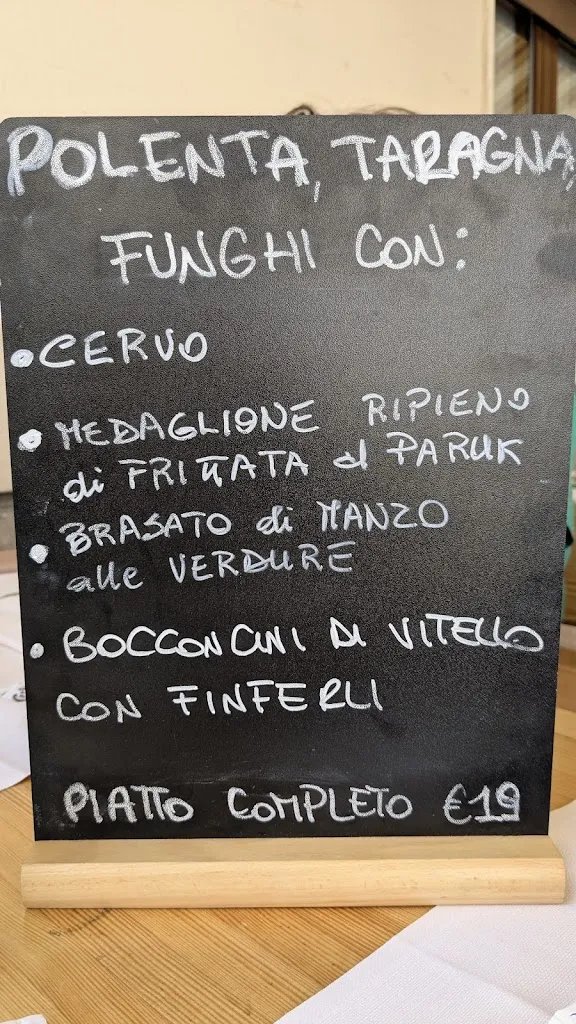 POLENTA, TARAGNA,
FUNGHI CON:
• CERVO
• MEDAGLIONE RIPIENO
di FRITTATA al PARUK
• BRASATO di MANZO
alle VERDURE
• BOCCONCINI DI VITELLO
CON FINFERLI
PIATTO COMPLETO €19